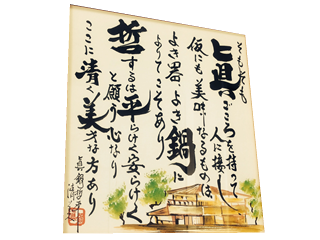 そもそも
眞ごころを持って
人に接し
仮にも美味なるものは
よき器 よき鍋に
よりてこそあり
哲するは平らけく安らけく
と願う心なり
ここに清く美な方あり
眞鍋哲平